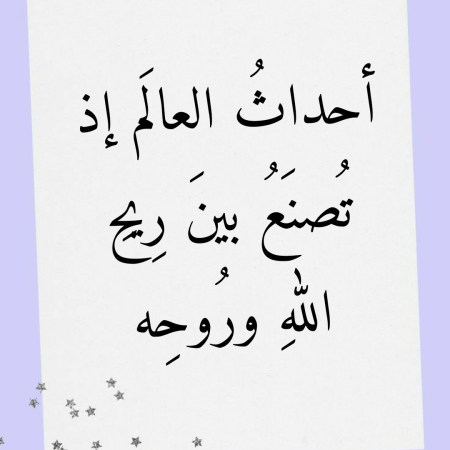 أحداثُ العالَم إذ
تُصنَعُ بينَ رِيحِ
اللهِ ورُوحِه